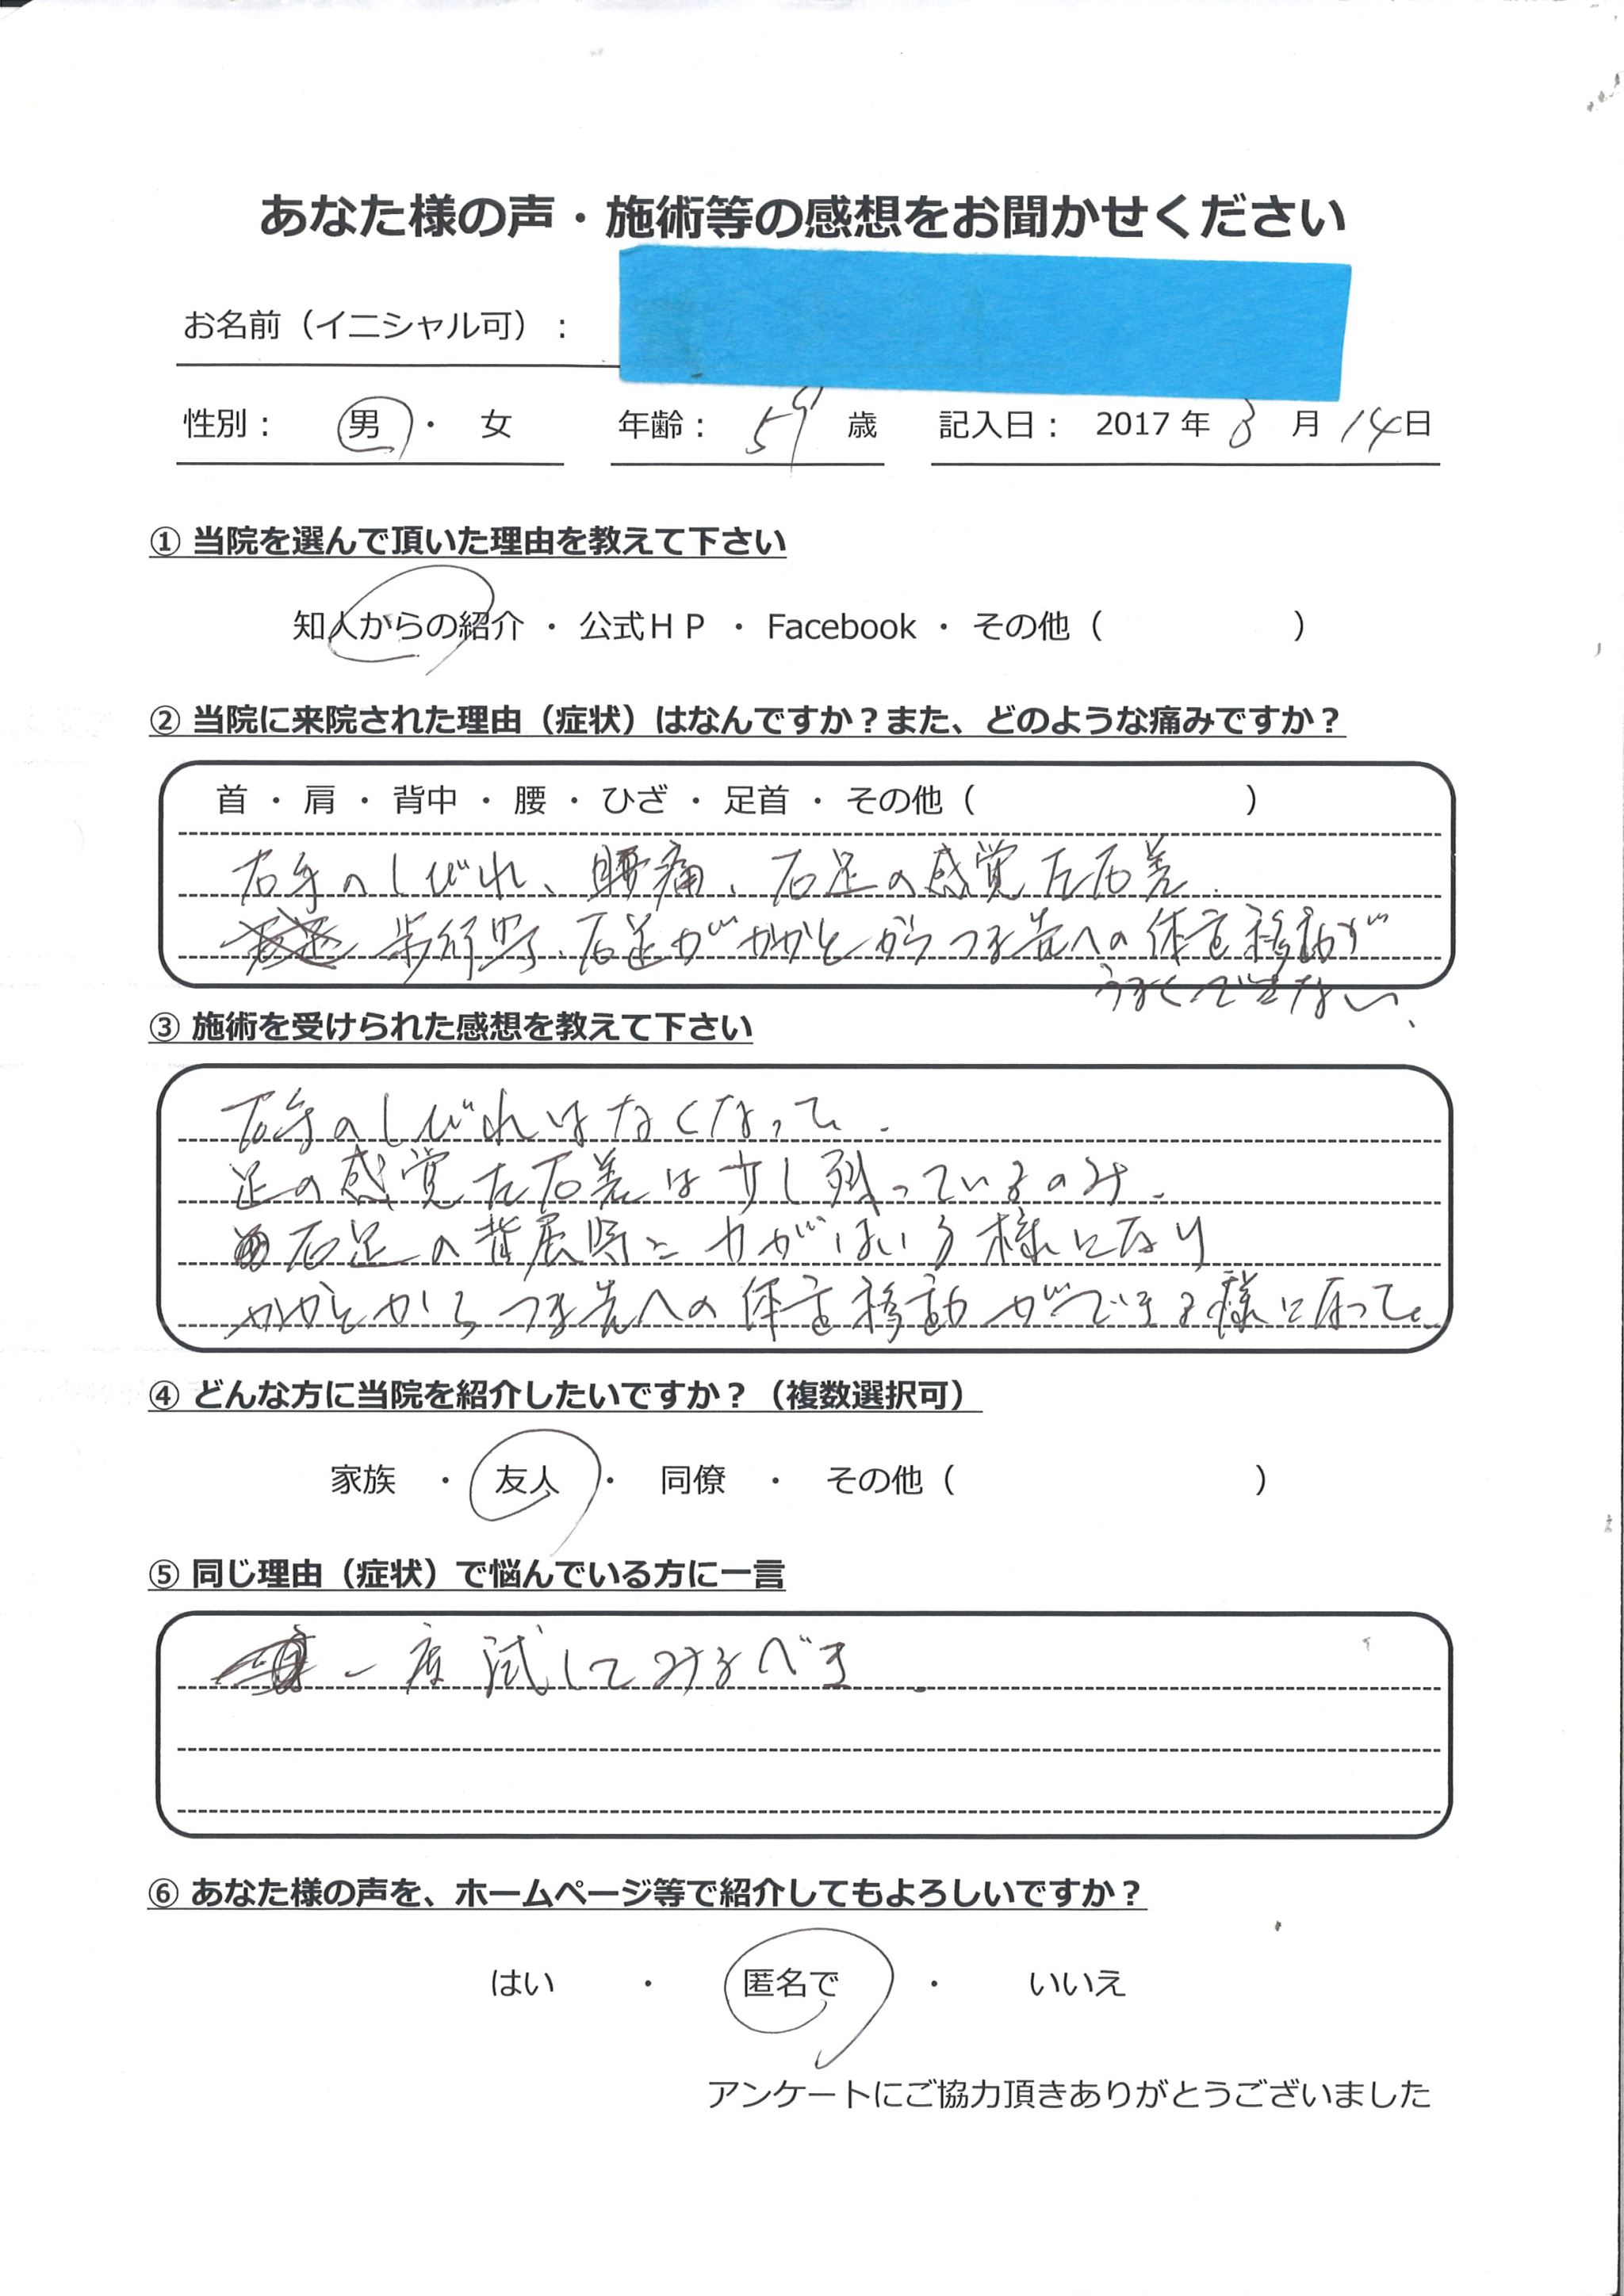 あなた様の声・施術等の感想をお聞かせください
お名前（イニシャル可）：
性別： 男 ・ 女 年齢： 59 歳 記入日： 2017 年 3 月 14 日
① 当院を選んで頂いた理由を教えて下さい
知人からの紹介 ・ 公式ＨＰ ・ Facebook ・ その他（ ）
② 当院に来院された理由（症状）はなんですか？また、どのような痛みですか？
首 ・ 肩 ・ 背中 ・ 腰 ・ ひざ ・ 足首 ・ その他（ ）
右手のしびれ、腰痛、右足の感覚左右差.
歩行時、右足がかかとからつま先への体重移動が
うまくできない、
③ 施術を受けられた感想を教えて下さい
右手のしびれはなくなった.
足の感覚左右差は少し残っているのみ.
右足の背屈時に力がはいる様になり
かかとからつま先への体重移動ができる様になった.
④ どんな方に当院を紹介したいですか？（複数選択可）
家族 ・ 友人 ・ 同僚 ・ その他（ ）
⑤ 同じ理由（症状）で悩んでいる方に一言
一度試してみるべき.
⑥ あなた様の声を、ホームページ等で紹介してもよろしいですか？
はい ・ 匿名で ・ いいえ
アンケートにご協力頂きありがとうございました